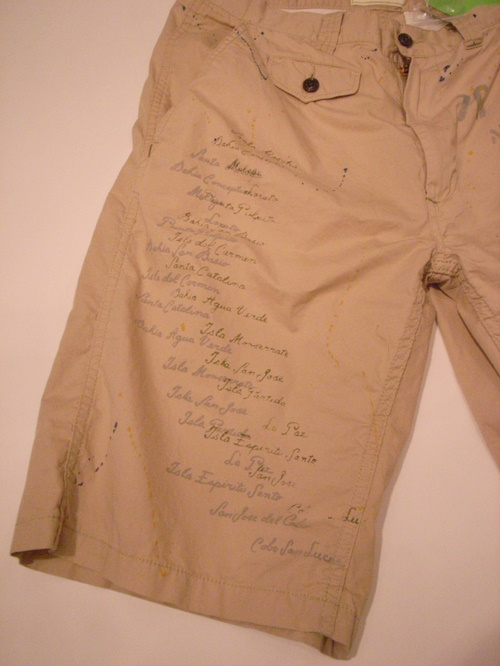 Santa
Bahia Concepcion Loreto
Loreto
Isla del Carmen
Bahia San Basio
Santa Catalina
Isla del Carmen
Bahia Agua Verde
Santa Catalina
Isla Monserrate
Bahia Agua Verde
Isla San Jose
Isla Monserrate
Isla Partida
Isla San Jose
La Paz
Isla Partida
Isla Espiritu Santo
La Paz
San Jose
Isla Espiritu Santo
Lu
San Jose del Cabo
Cabo San Lucas